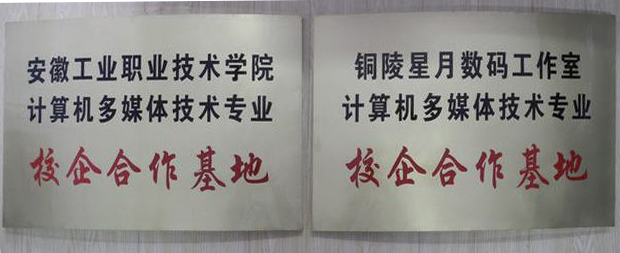 安徽工业职业技术学院
计算机多媒体技术专业
校企合作基地
铜陵星月数码工作室
计算机多媒体技术专业
校企合作基地